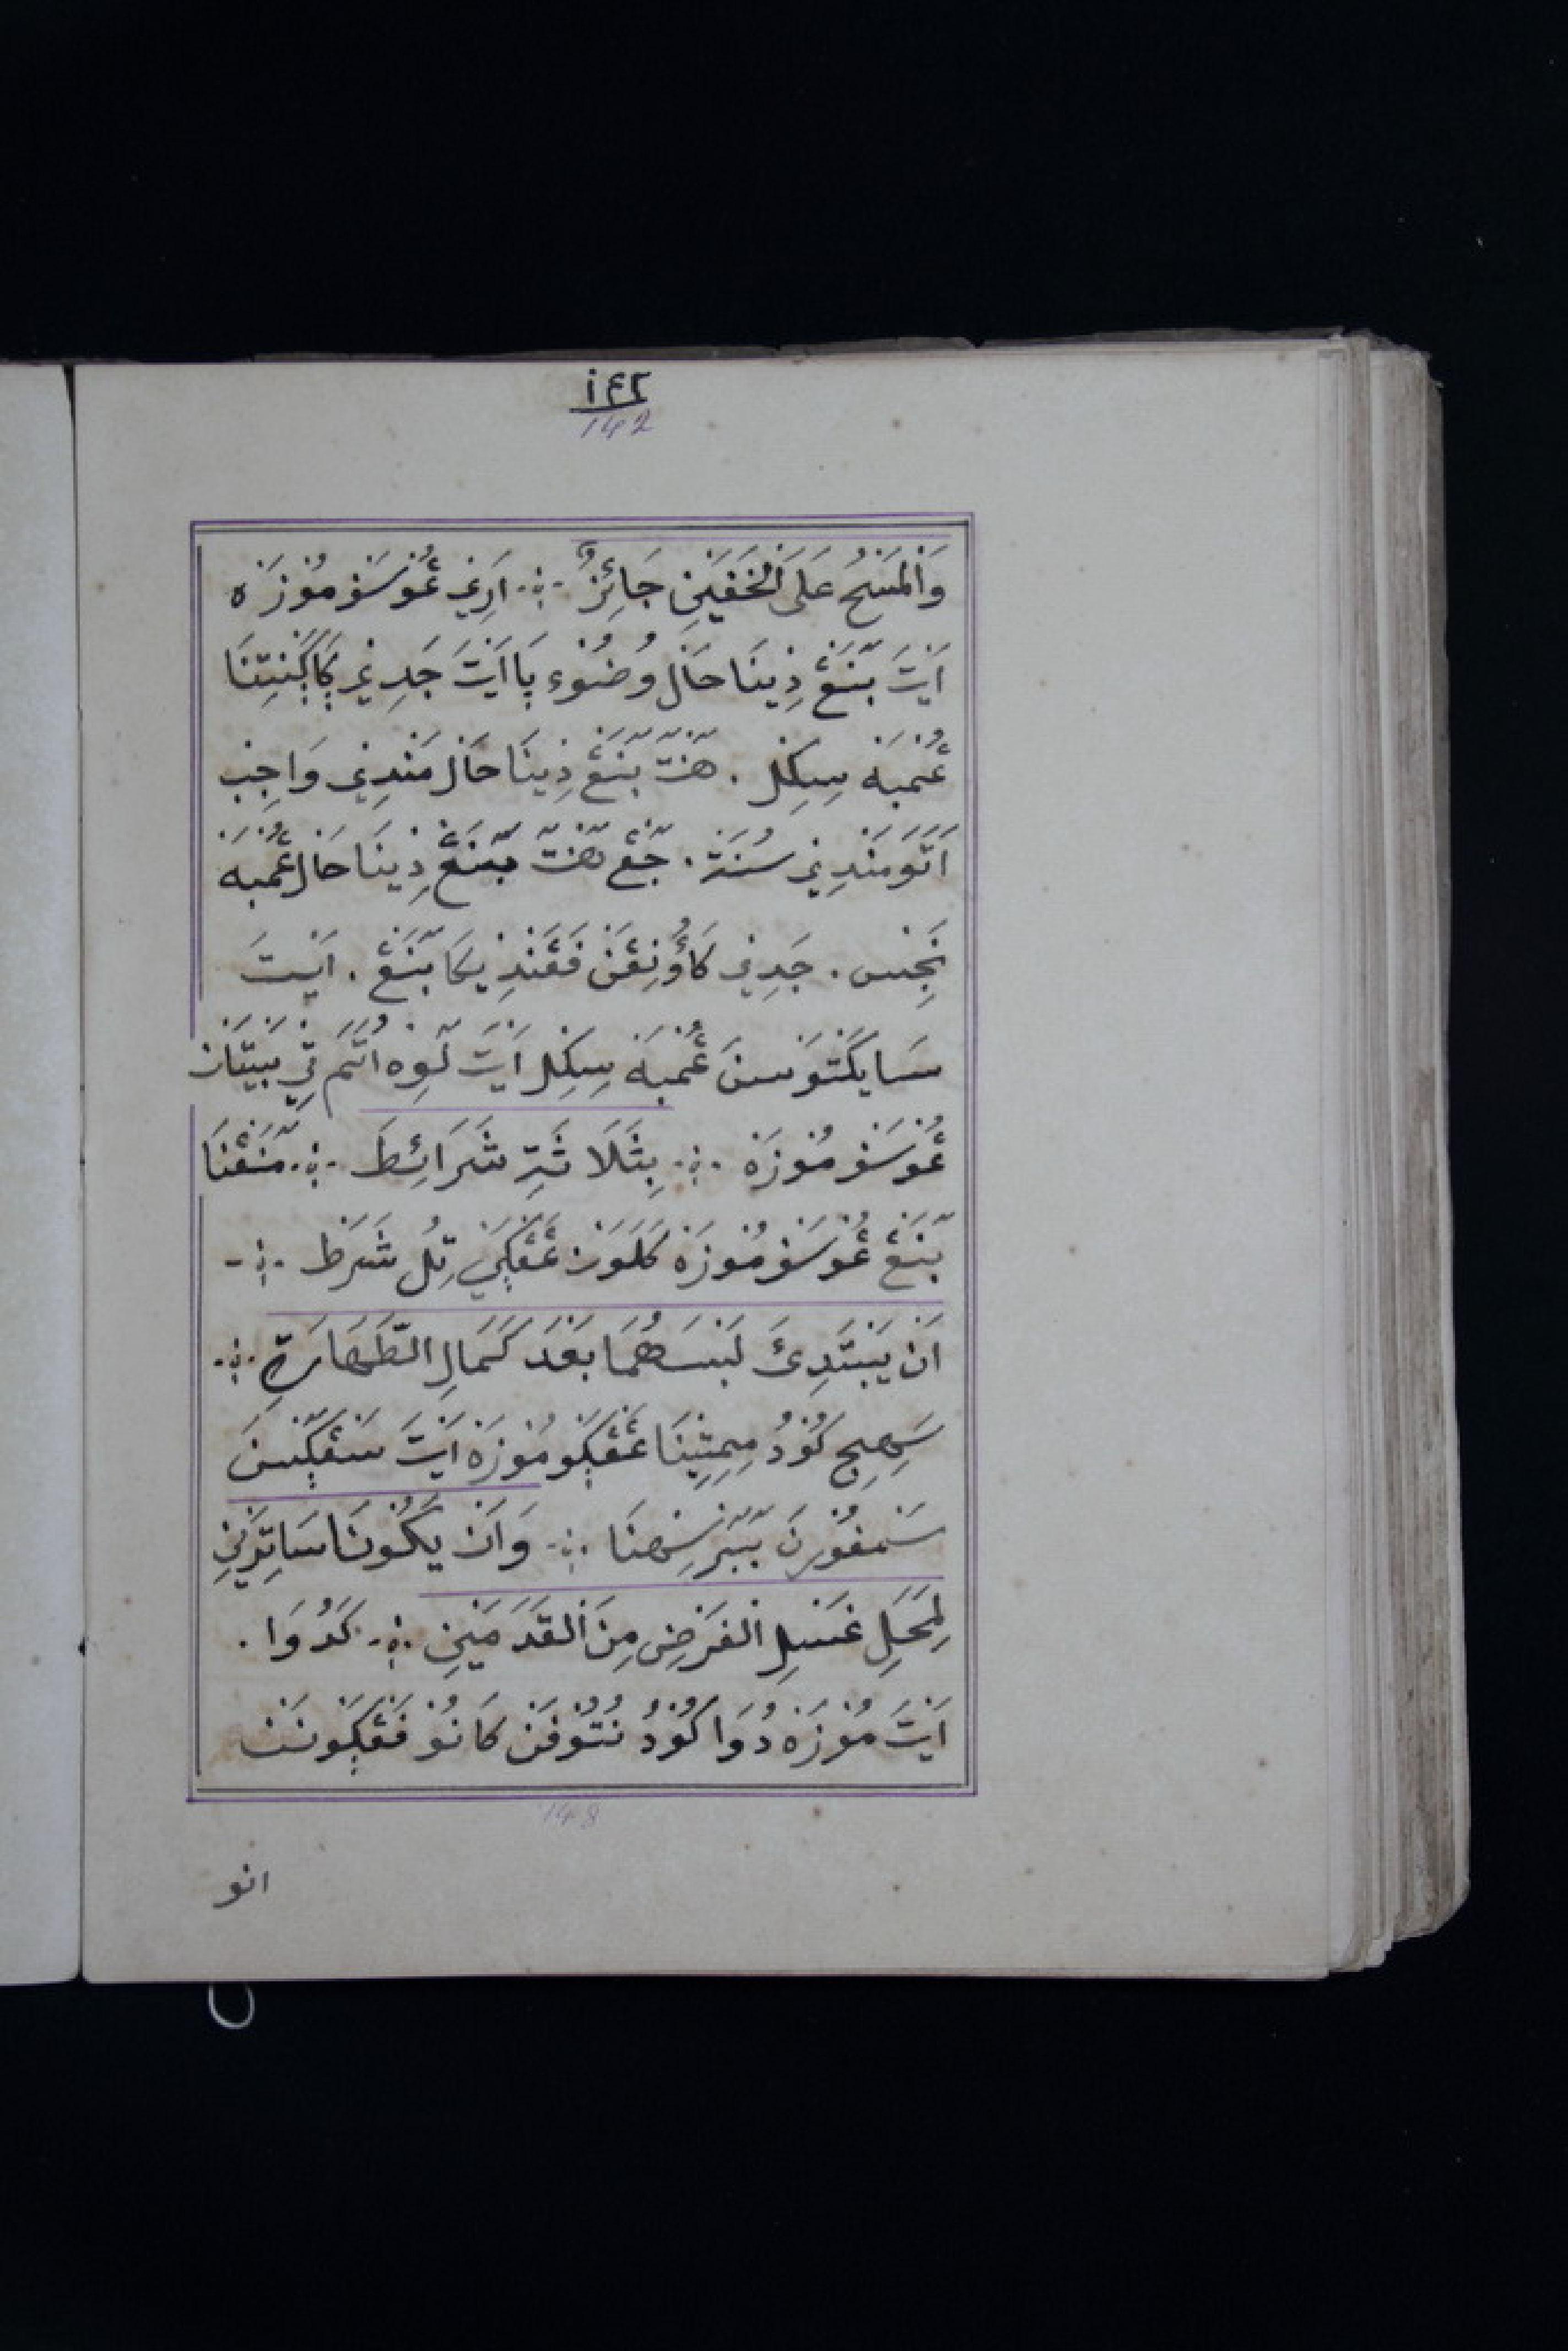 ١٤٢
142
وَالْمَسْحُ عَلَى الْخُفَّيْنِ جَائِزٌ ؞ اَرِيْ ڠُوْسَفْ مُوْزَه
اَيْتَ بّنَڠْ دِينَا حَالْ وُضُوْء ڽَا اَيْتَ جَدِيْ ڬَڬَنْتِنَا
ڠُمْبَهْ سِكِلْ . هَنْتّ بّنَڠْ دِينَا حَالْ مَنْدِيْ وَاجِبْ
اَتَوَ مَنْدِيْ سُنَة . جّڠْ هَنْتّ بّنَڠْ دِينَا حَالْ ڠُمْبَهْ
نَجِسْ . جَدِيْ كَاُوْنِڠَنْ فَڠَنْدِيْكَا بّنَڠْ . اَيْتَ
سَايَكْتَوْسنَ ڠُمْبَهْ سِكِلْ اَيْتَ لّوِه اُتَمَ تِي بَيْتَانْ
ڠُوْسَفْ مُوْزَهْ ؞ بِثَلَاثَةِ شَرَائِطَ ؞ مّنَڠْنَا
بّنَڠْ ڠُوْسَفْ مُوْزَهْ كَلَوَنْ ڠَڠْڬَيْ تِلُ شَرَطْ ؞
اَنْ يَبْتَدِئَ لَبْسَهُمَا بَعْدَ كَمَالِ الطَّهَارَةِ ؞
سَهِجِ كُوْدُ مِمِتِينَا ڠَڠْڬَو مُوْزَهْ اَيْتَ سَڠْكّسنَ
سَمْفُوْرنَ بّبّرْسِهنَا ؞ وَاَنْ يَكُوْنَا سَاتِرَيْنِ
لِمَحَلِ غَسْلِ الْفَرْضِ مِنَ الْقَدَمَيْنِ ؞ كَدُوَا .
اَيْتَ مُوْزَهْ دُوَا كُوْدُ نُتُوْفَنْ كَانُوْ فَڠْڬَوْنَنْ
148
انو